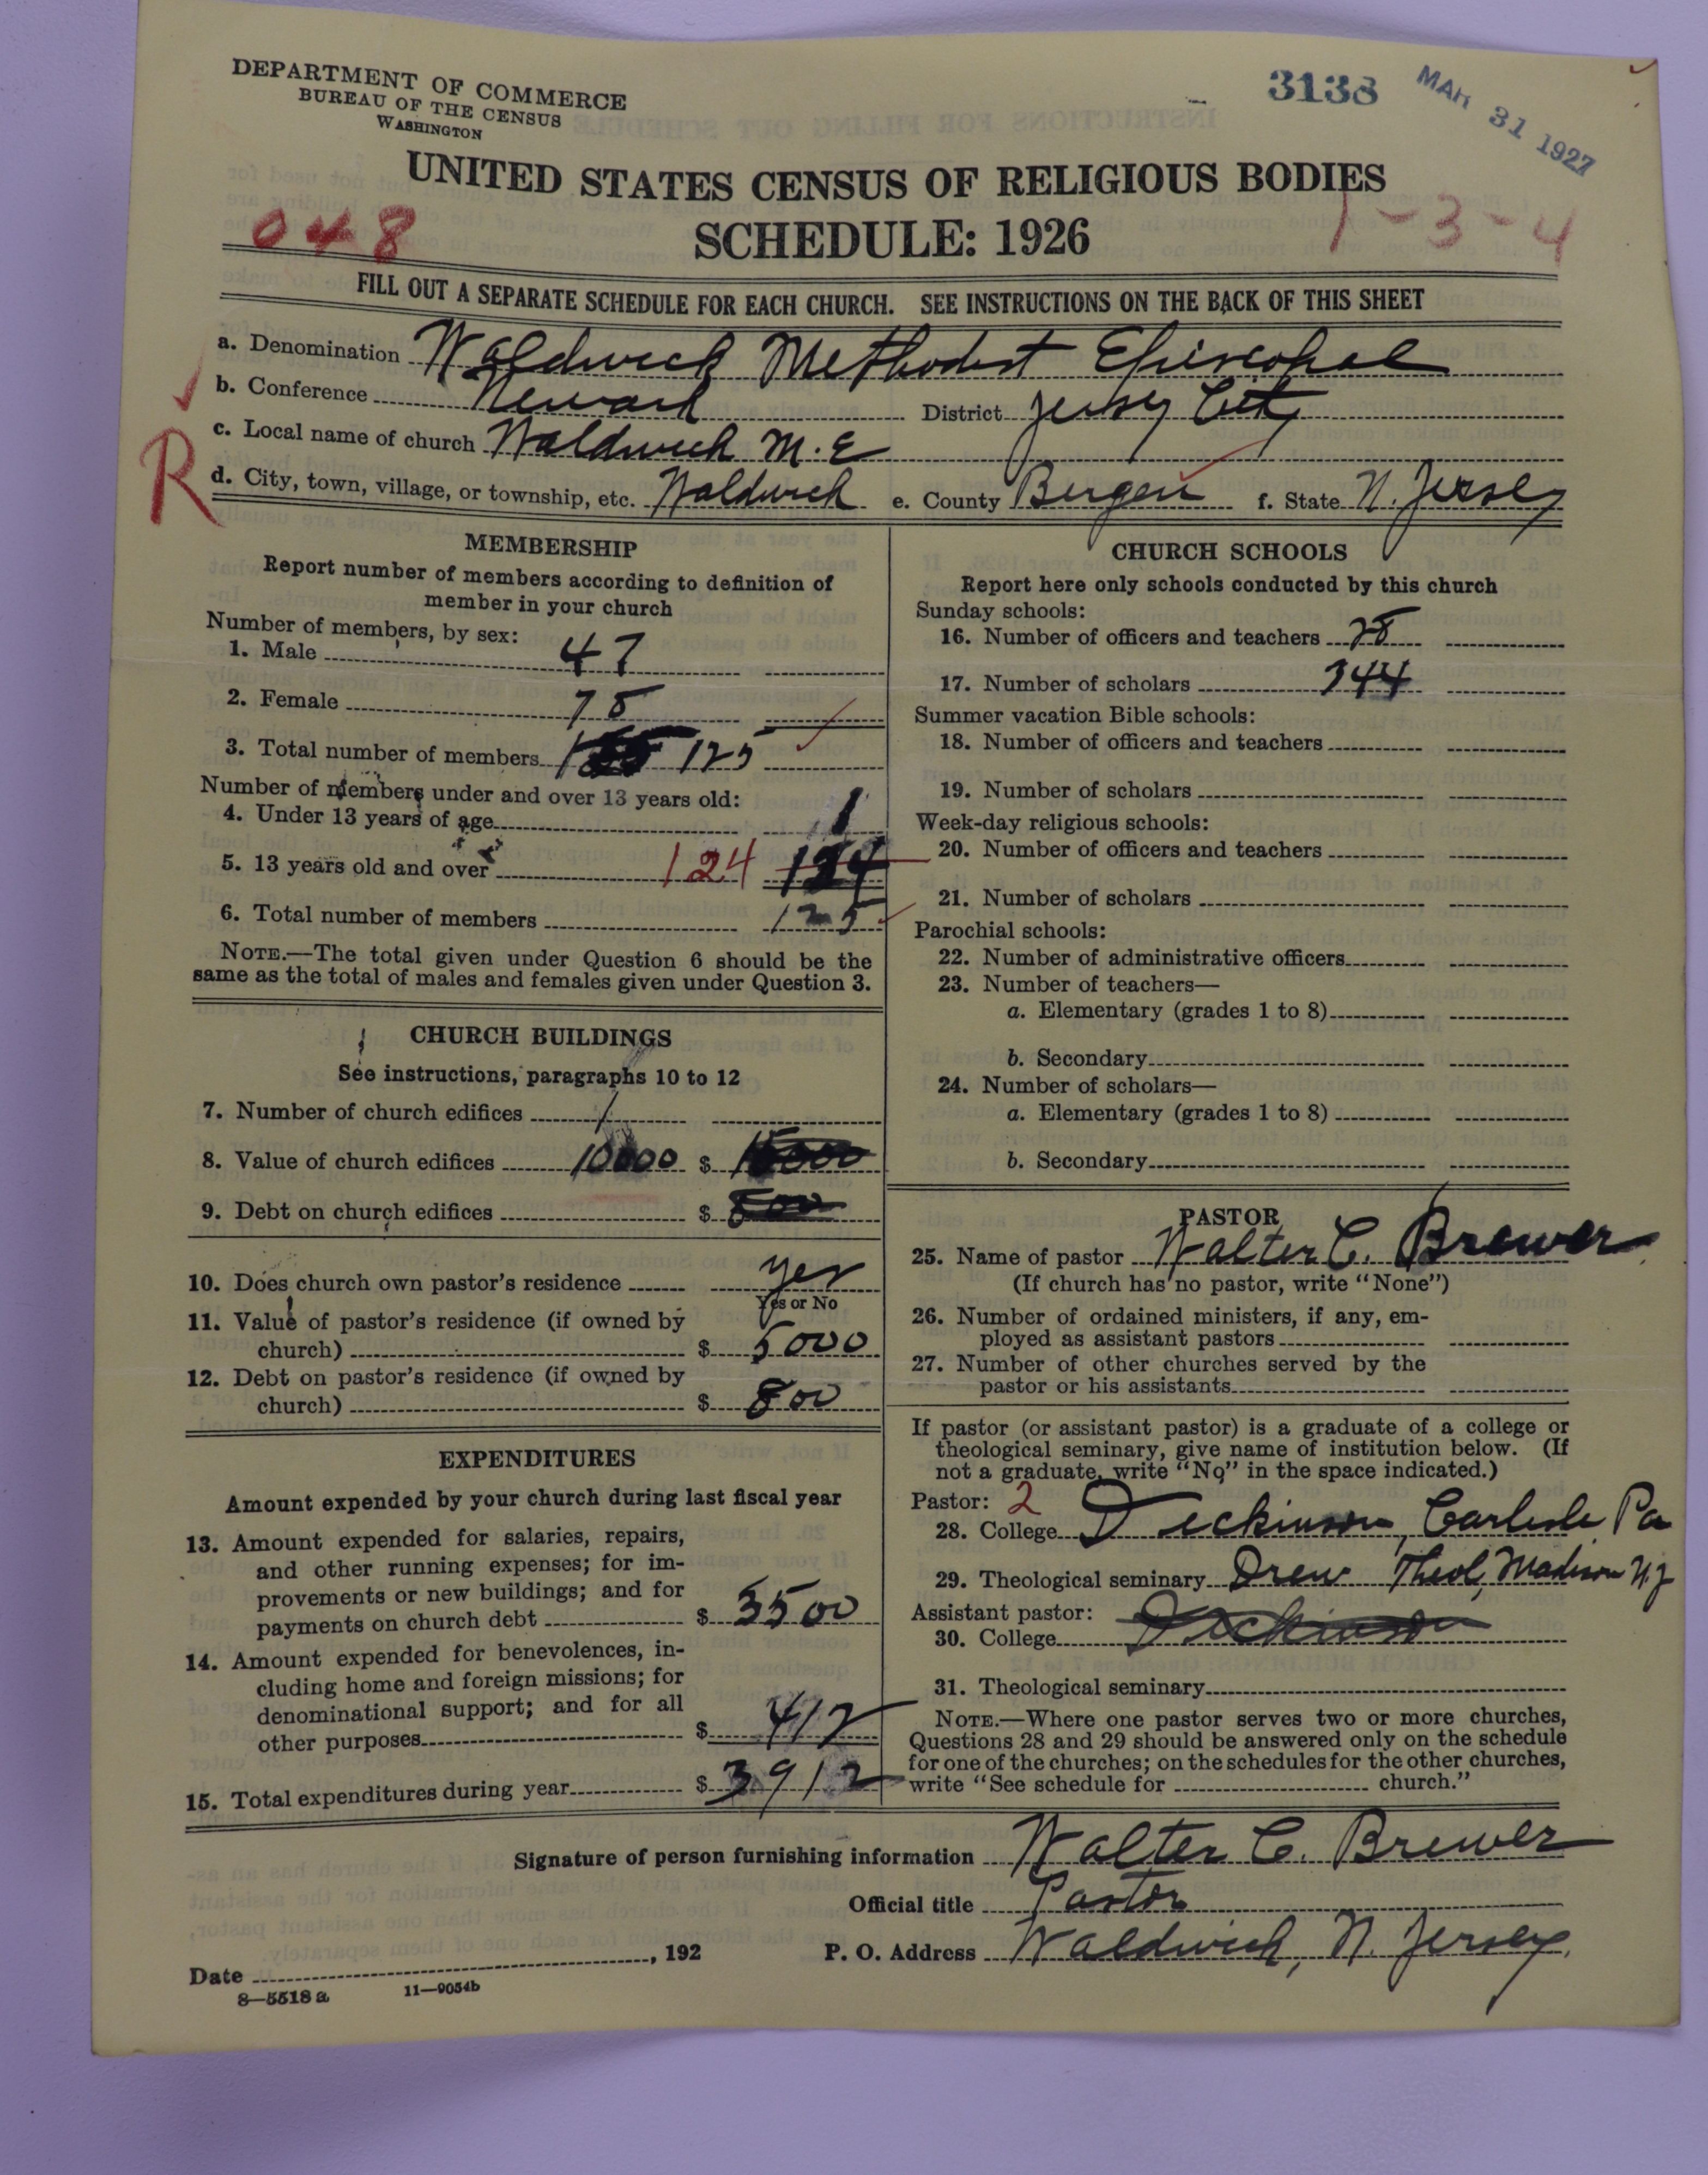 DEPARTMENT OF COMMERCE
BUREAU OF THE CENSUS
WASHINGTON
3138
MAR 31 1927
UNITED STATES CENSUS OF RELIGIOUS BODIES
SCHEDULE: 1926
048
1-3-4
FILL OUT A SEPARATE SCHEDULE FOR EACH CHURCH. SEE INSTRUCTIONS ON THE BACK OF THIS SHEET
a. Denomination Waldwick Methodist Episcopal
b. Conference Newark District Jersey City
c. Local name of church Waldwick M. E
R
d. City, town, village, or township, etc. Waldwick e. County Bergen f. State N. Jersey
MEMBERSHIP
Report number of members according to definition of
member in your church
Number of members, by sex:
1. Male 47
2. Female 78
3. Total number of members 125
Number of members under and over 13 years old:
4. Under 13 years of age 1
5. 13 years old and over 124 124
6. Total number of members 125
NOTE.—The total given under Question 6 should be the
same as the total of males and females given under Question 3.
CHURCH BUILDINGS
See instructions, paragraphs 10 to 12
7. Number of church edifices 1
8. Value of church edifices 10000 $ 15000
9. Debt on church edifices $ 800
10. Does church own pastor's residence yes
Yes or No
11. Value of pastor's residence (if owned by
church) $ 5000
12. Debt on pastor's residence (if owned by
church) $ 800
EXPENDITURES
Amount expended by your church during last fiscal year
13. Amount expended for salaries, repairs,
and other running expenses; for im-
provements or new buildings; and for
payments on church debt $ 3500
14. Amount expended for benevolences, in-
cluding home and foreign missions; for
denominational support; and for all
other purposes $ 412
15. Total expenditures during year $ 3912
CHURCH SCHOOLS
Report here only schools conducted by this church
Sunday schools:
16. Number of officers and teachers 28
17. Number of scholars 344
Summer vacation Bible schools:
18. Number of officers and teachers
19. Number of scholars
Week-day religious schools:
20. Number of officers and teachers
21. Number of scholars
Parochial schools:
22. Number of administrative officers
23. Number of teachers—
a. Elementary (grades 1 to 8)
b. Secondary
24. Number of scholars—
a. Elementary (grades 1 to 8)
b. Secondary
PASTOR
25. Name of pastor Walter C. Brewer
(If church has no pastor, write "None")
26. Number of ordained ministers, if any, em-
ployed as assistant pastors
27. Number of other churches served by the
pastor or his assistants
If pastor (or assistant pastor) is a graduate of a college or
theological seminary, give name of institution below. (If
not a graduate, write "No" in the space indicated.)
Pastor: 2
28. College Dickinson, Carlisle Pa
29. Theological seminary Drew Theol, Madison N.J
Assistant pastor:
30. College Dickinson
31. Theological seminary
NOTE.—Where one pastor serves two or more churches,
Questions 28 and 29 should be answered only on the schedule
for one of the churches; on the schedules for the other churches,
write "See schedule for church."
Signature of person furnishing information Walter C. Brewer
Official title Pastor
Date , 192 P. O. Address Waldwick, N. Jersey.
8—5518 a 11—9054b